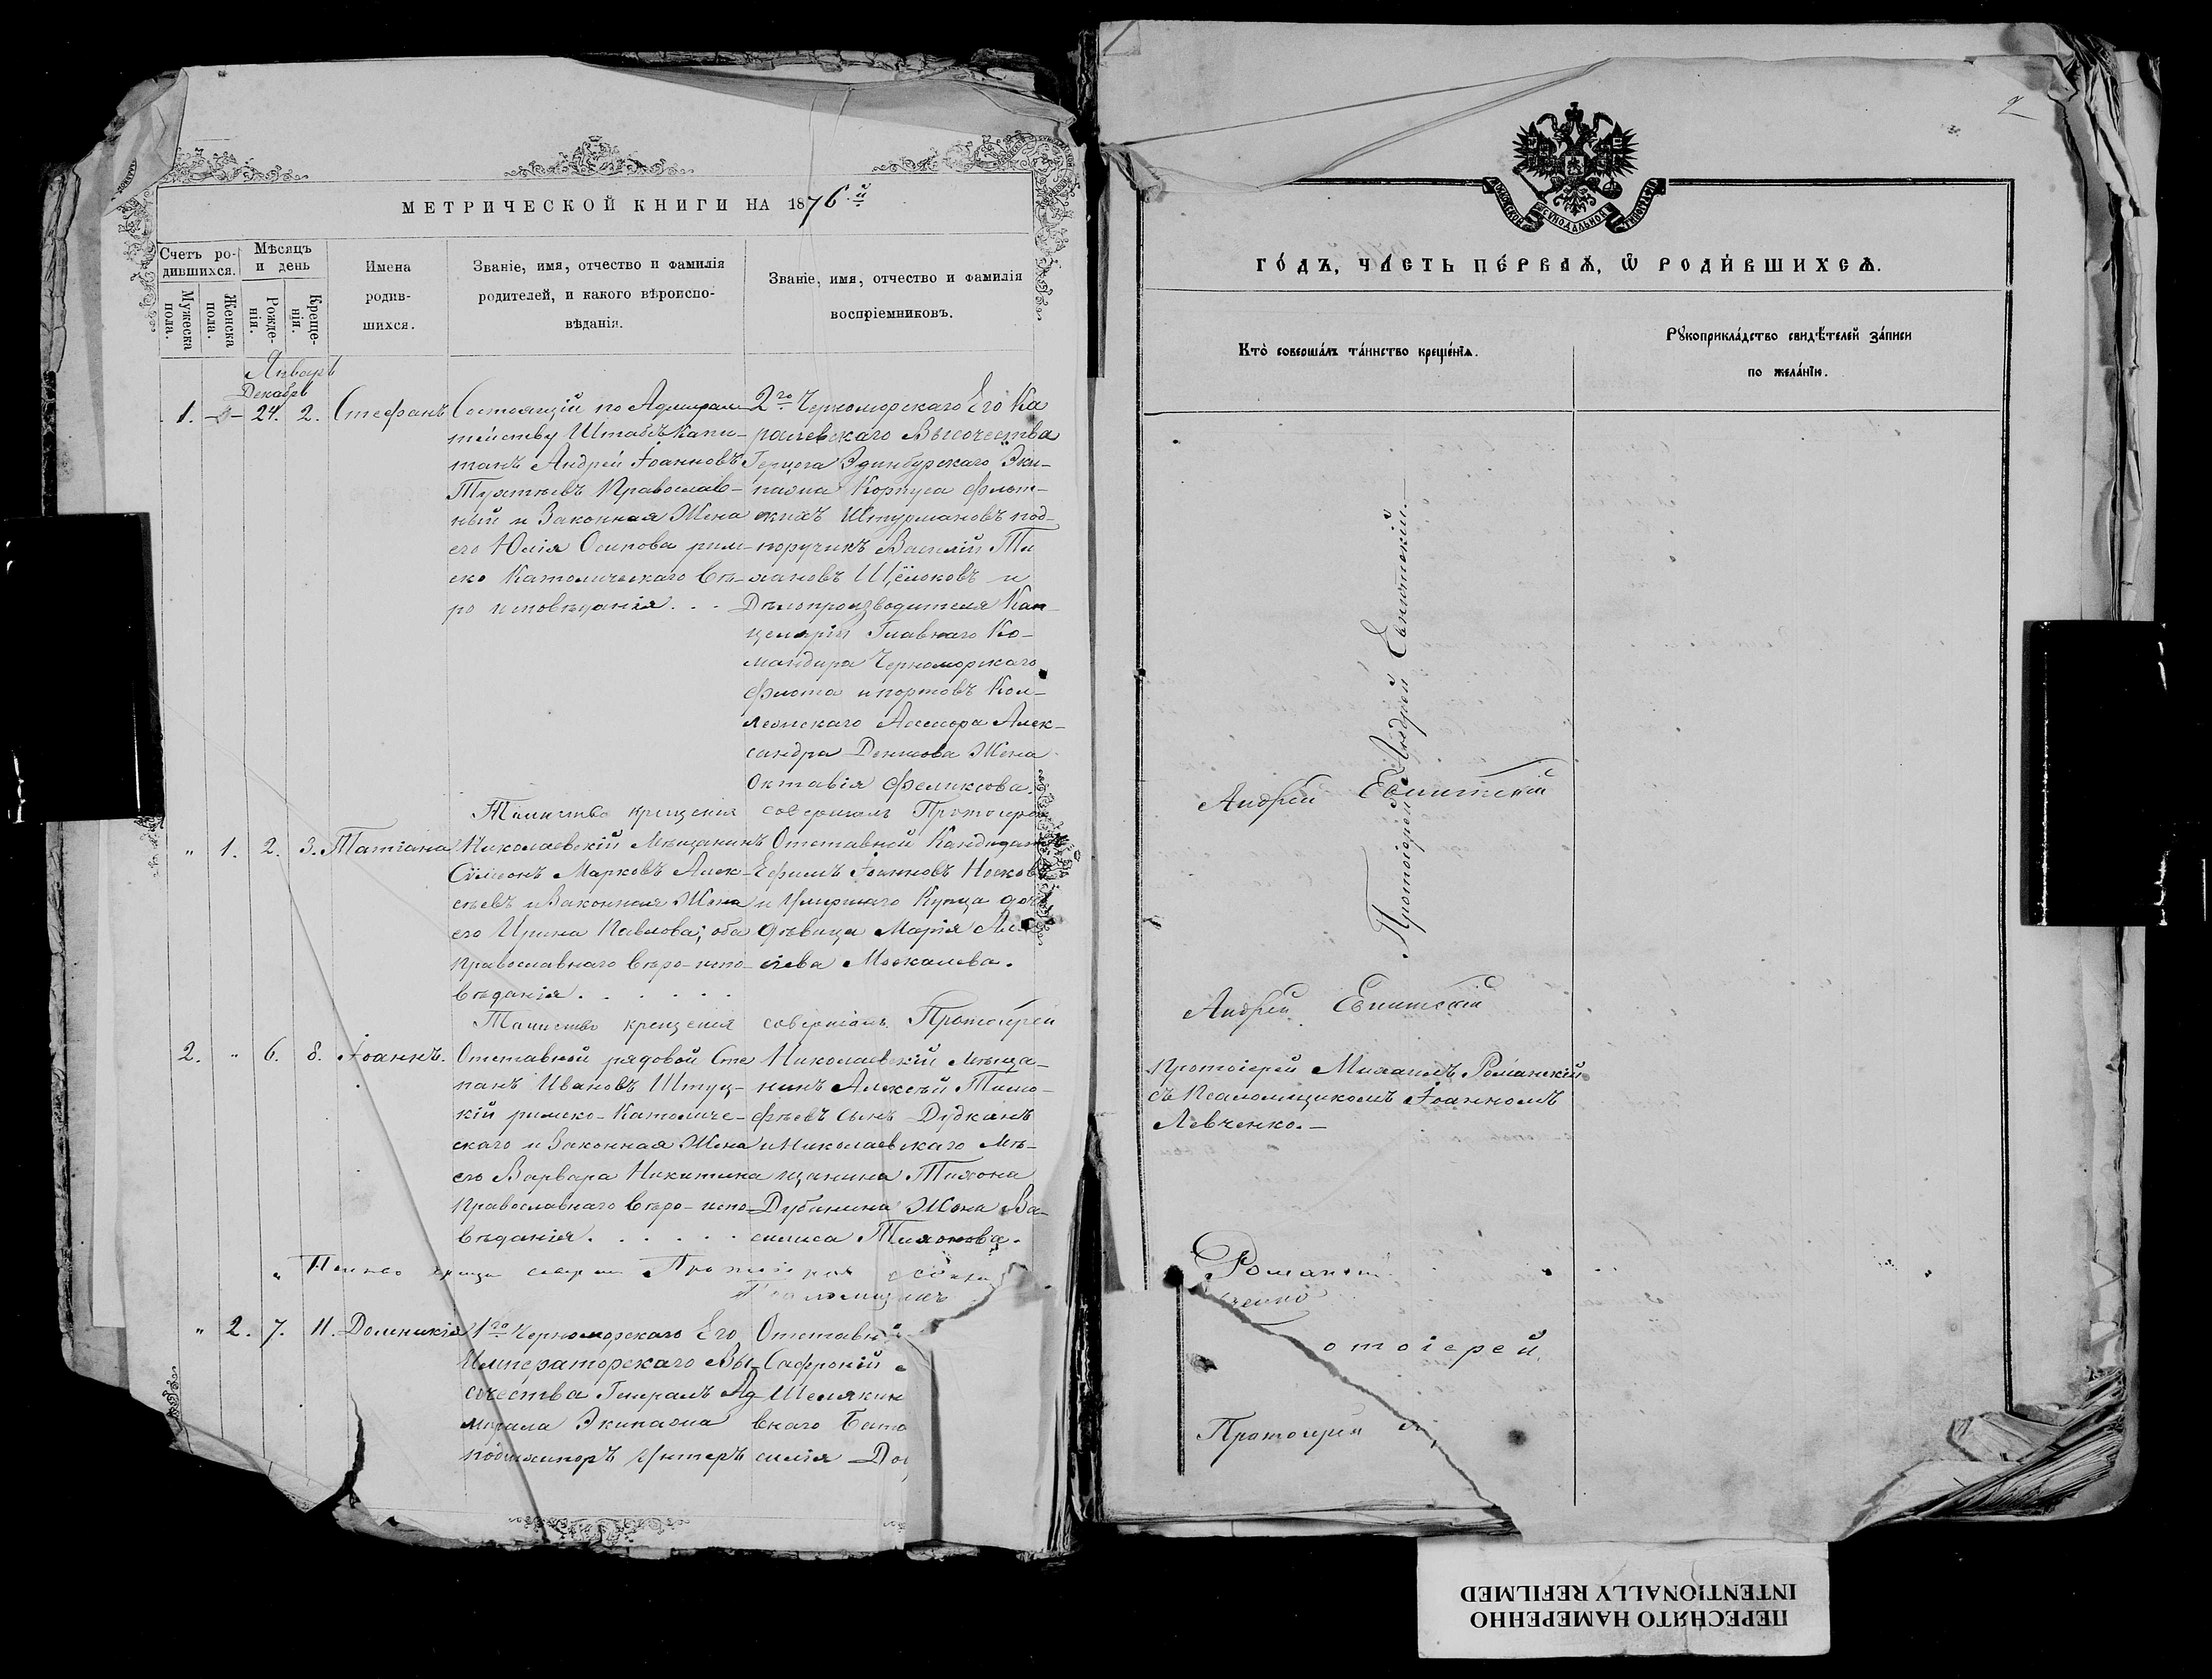 МЕТРИЧЕСКОЙ КНИГИ НА 1876 й
Счетъ ро-
дившихся.
Мѣсяцъ
и день
Мужеска пола.
Женска пола.
Рожде-
нія.
Креще-
нія.
Имена
родив-
шихся.
Званіе, имя, отчество и фамилія
родителей, и какого вѣроиспо-
вѣданія.
Званіе, имя, отчество и фамилія
воспріемниковъ.
Январь
Декабрь
1. 24. 2. Стефанъ
Состоящій по Адмирал-
тейству Штабсъ Капи-
танъ Андрей Іоанновъ
Православ-
ный и Законная Жена
его Юлія Осипова рим-
ско Католическаго вѣ-
ро исповѣданія. . .
2го Черноморскаго Его Ка
ралевскаго Высочества
Герцога Эдинбурскаго Эки-
пажа Корпуса флот-
скихъ Штурмановъ под-
поручикъ Василій Ти
хановъ Щёлоковъ и
Дѣлопроизводителя Кан-
целяріи Главнаго Ко-
мандира Черноморскаго
флота и портовъ Кол-
лежскаго Ассесора Алек-
сандра Денисова Жена
Октавія Феликсова.
Таинство крещенія совершалъ Протоіерей
" 1. 2. 3. Татіана
Николаевскій Мѣщанинъ
Сѵмеонъ Марковъ Алек-
сѣевъ и Законная Жена
его Ирина Павлова; оба
православнаго вѣро-испо-
вѣданія. . . . . . .
Отставной Кандидатъ
Ефимъ Іоанновъ Носковъ
и Умершаго Купца доч
дѣвица Марія
Москалева.
Таинство крещенія совершалъ Протоіерей
2. " 6. 8. Іоаннъ.
Отставной рядовой Сте
панъ Ивановъ Штуц-
кій римско-Католиче-
скаго и Законная Жена
его Варвара Никитина
православнаго вѣро-испо-
вѣданія. . . . . .
Николаевскій мѣща-
нинъ Алексѣй Тимо-
фѣевъ сынъ Дудканъ
и Николаевскаго мѣ-
щанина Тихона
Дубинина Жена Ва-
силиса Тихонова.
Псаломщикъ
" 2. 7. 11. Домникія
1го Черноморскаго Его
Императорскаго Вы-
сочества Генералъ Ад-
мирала Экипажа
Унтеръ
Отставн
Сафроній
Шелякин
внаго
силія
2
МОСКОВСКОЙ СѴНОДАЛЬНОЙ ТИПОГРАФІИ
ГО́ДЪ, ЧА́СТЬ ПЕ́РВАѦ, Ѿ РОДИ́ВШИХСѦ.
Кто̀ соверша́лъ та́инство креще́нїѧ.
Рꙋкоприкла́дство свидѣ́телей за́писи
по жела́нїю.
Протоіерей Андрей Евнитскій.
Андрей Евнитскій
Андрей Евнитскій
Протоіерей Михаилъ Романскій
съ Псаломщикомъ Іоанномъ
Левченко.—
Романск
ченко
отоіерей.
Протоіерей
ПЕРЕСНЯТО НАМЕРЕННО
INTENTIONALLY REFILMED